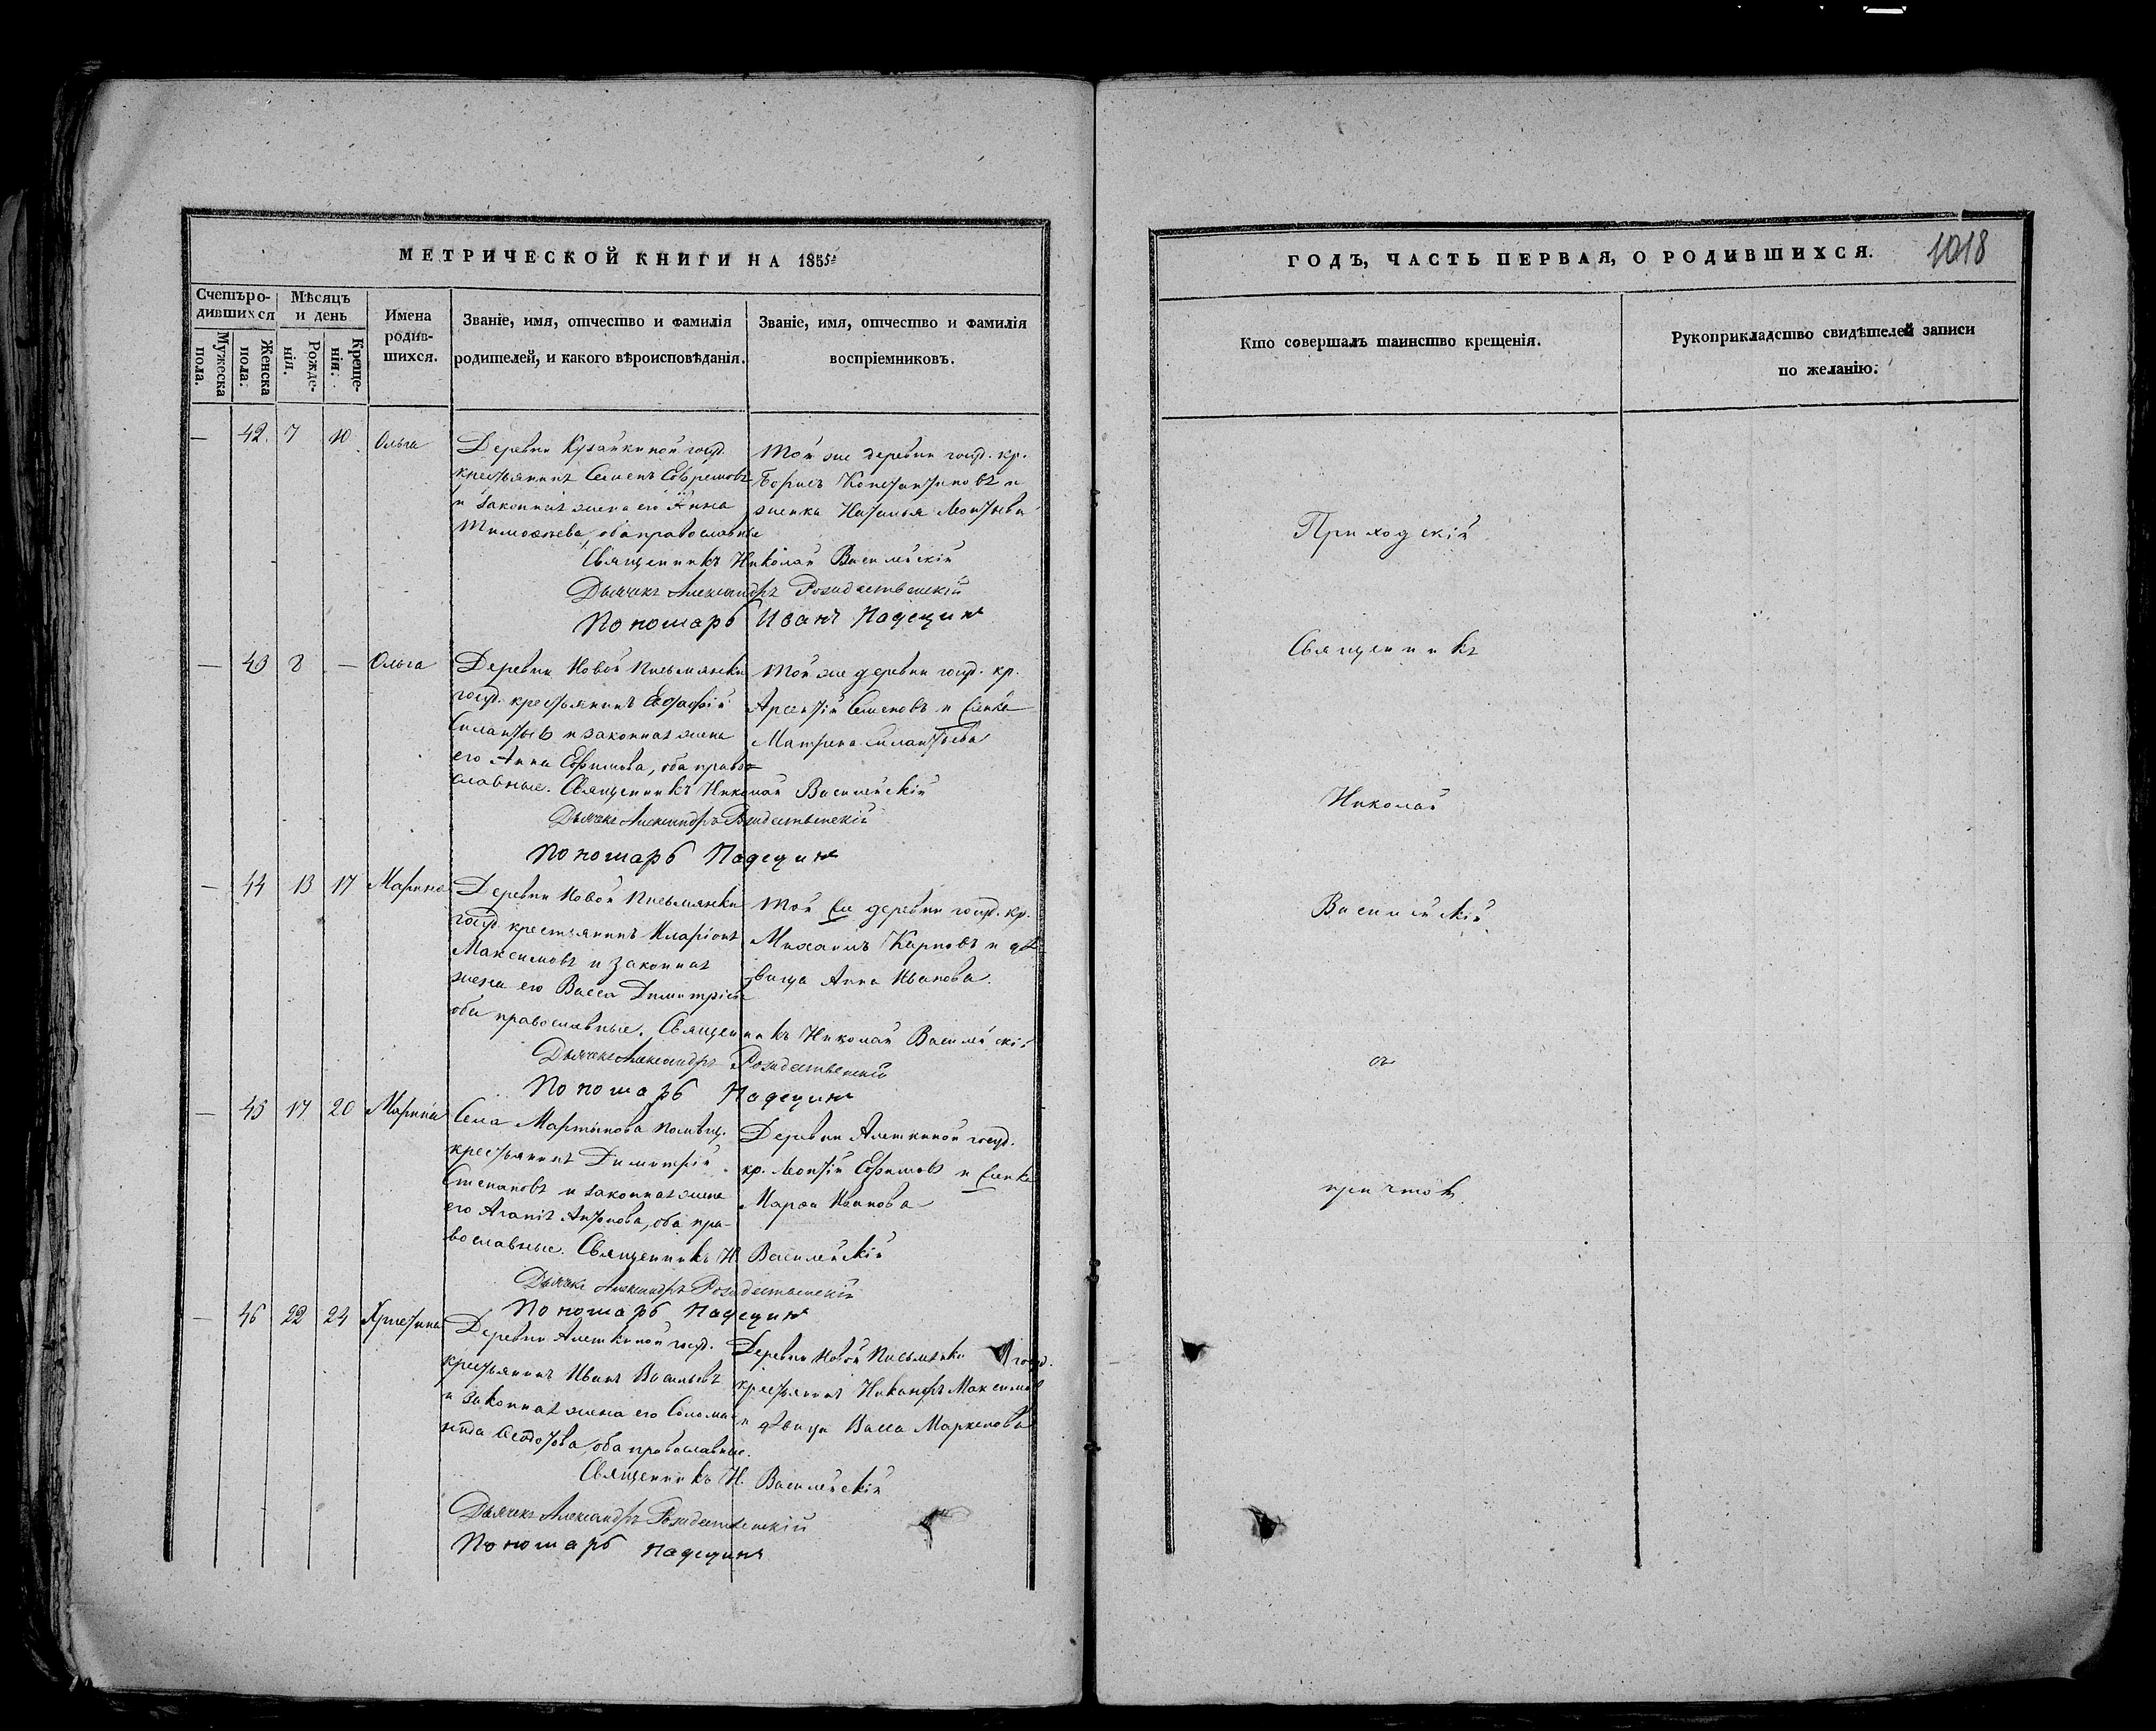 МЕТРИЧЕСКОЙ КНИГИ НА 1855й
Счетъ родившихся
Мѣсяцъ и день
Имена родившихся.
Званіе, имя, отчество и фамилія
родителей, и какого вѣроисповѣданія.
Званіе, имя, отчество и фамилія
воспріемниковъ.
Мужеска пола.
Женска пола.
Рожденія.
Крещенія.
— 42. 7 10 Ольга
Деревни государ.
крестьянинъ Семенъ Ефремовъ
и законная жена его Анна
Тимоѳеева, оба православные
Той же деревни госуд. кр.
Борисъ Константиновъ и
женка Наталья Леонтьева
Священникъ Николай Василейскій
Дьячекъ Александръ Рождественскій
Пономарь Иванъ Надеџин
— 43 8 — Ольга
Деревни Новой Письмянки
госуд. крестьянинъ Евстафій
Силантьевъ и законная жена
его Анна Ефимова, оба право-
славные. Священникъ Николай Василейскій
Той же деревни госуд. кр.
Арсентій Семеновъ и женка
Матрена Силантьева
Дьячекъ Александръ Рождественскій
Пономарь Надеџин
— 44 13 17 Марина
Деревни Новой Письмянки
госуд. крестьянинъ Иларіонъ
Максимовъ и законная
жена его Васса Димитріева
оба православные. Священникъ Николай Василейскій
Той же деревни госуд. кр.
Михаилъ Карповъ и дѣ-
вица Анна Иванова.
Дьячекъ Александръ Рождественскій
Пономарь Надеџин
— 45 17 20 Марина
Села Мартынова помѣщ.
крестьянинъ Димитрій
Степановъ и законная жена
его Агапія Антонова, оба пра-
вославные. Священникъ Н. Василейскій
Деревни Алешкиной госуд.
кр. Леонтій Ефимовъ и женка
Марѳа Иванова
Дьячекъ Александръ Рождественскій
Пономарь Надеџин
— 46 22 24 Христина
Деревни Алешкиной госуд.
крестьянинъ Иванъ Васильевъ
и законная жена его Солома-
нида Ѳедотова, оба православные.
Деревни Новой Письмянки госуд.
крестьянинъ Никаноръ Максимовъ
и дѣвица Васса Маркелова
Священникъ Н. Василейскій
Дьячекъ Александръ Рождественскій
Пономарь Надеџин
ГОДЪ, ЧАСТЬ ПЕРВАЯ, О РОДИВШИХСЯ.
1018
Кто совершалъ таинство крещенія.
Рукоприкладство свидѣтелей записи
по желанію.
Приходскій
Священникъ
Николай
Василейскій
съ
причтомъ